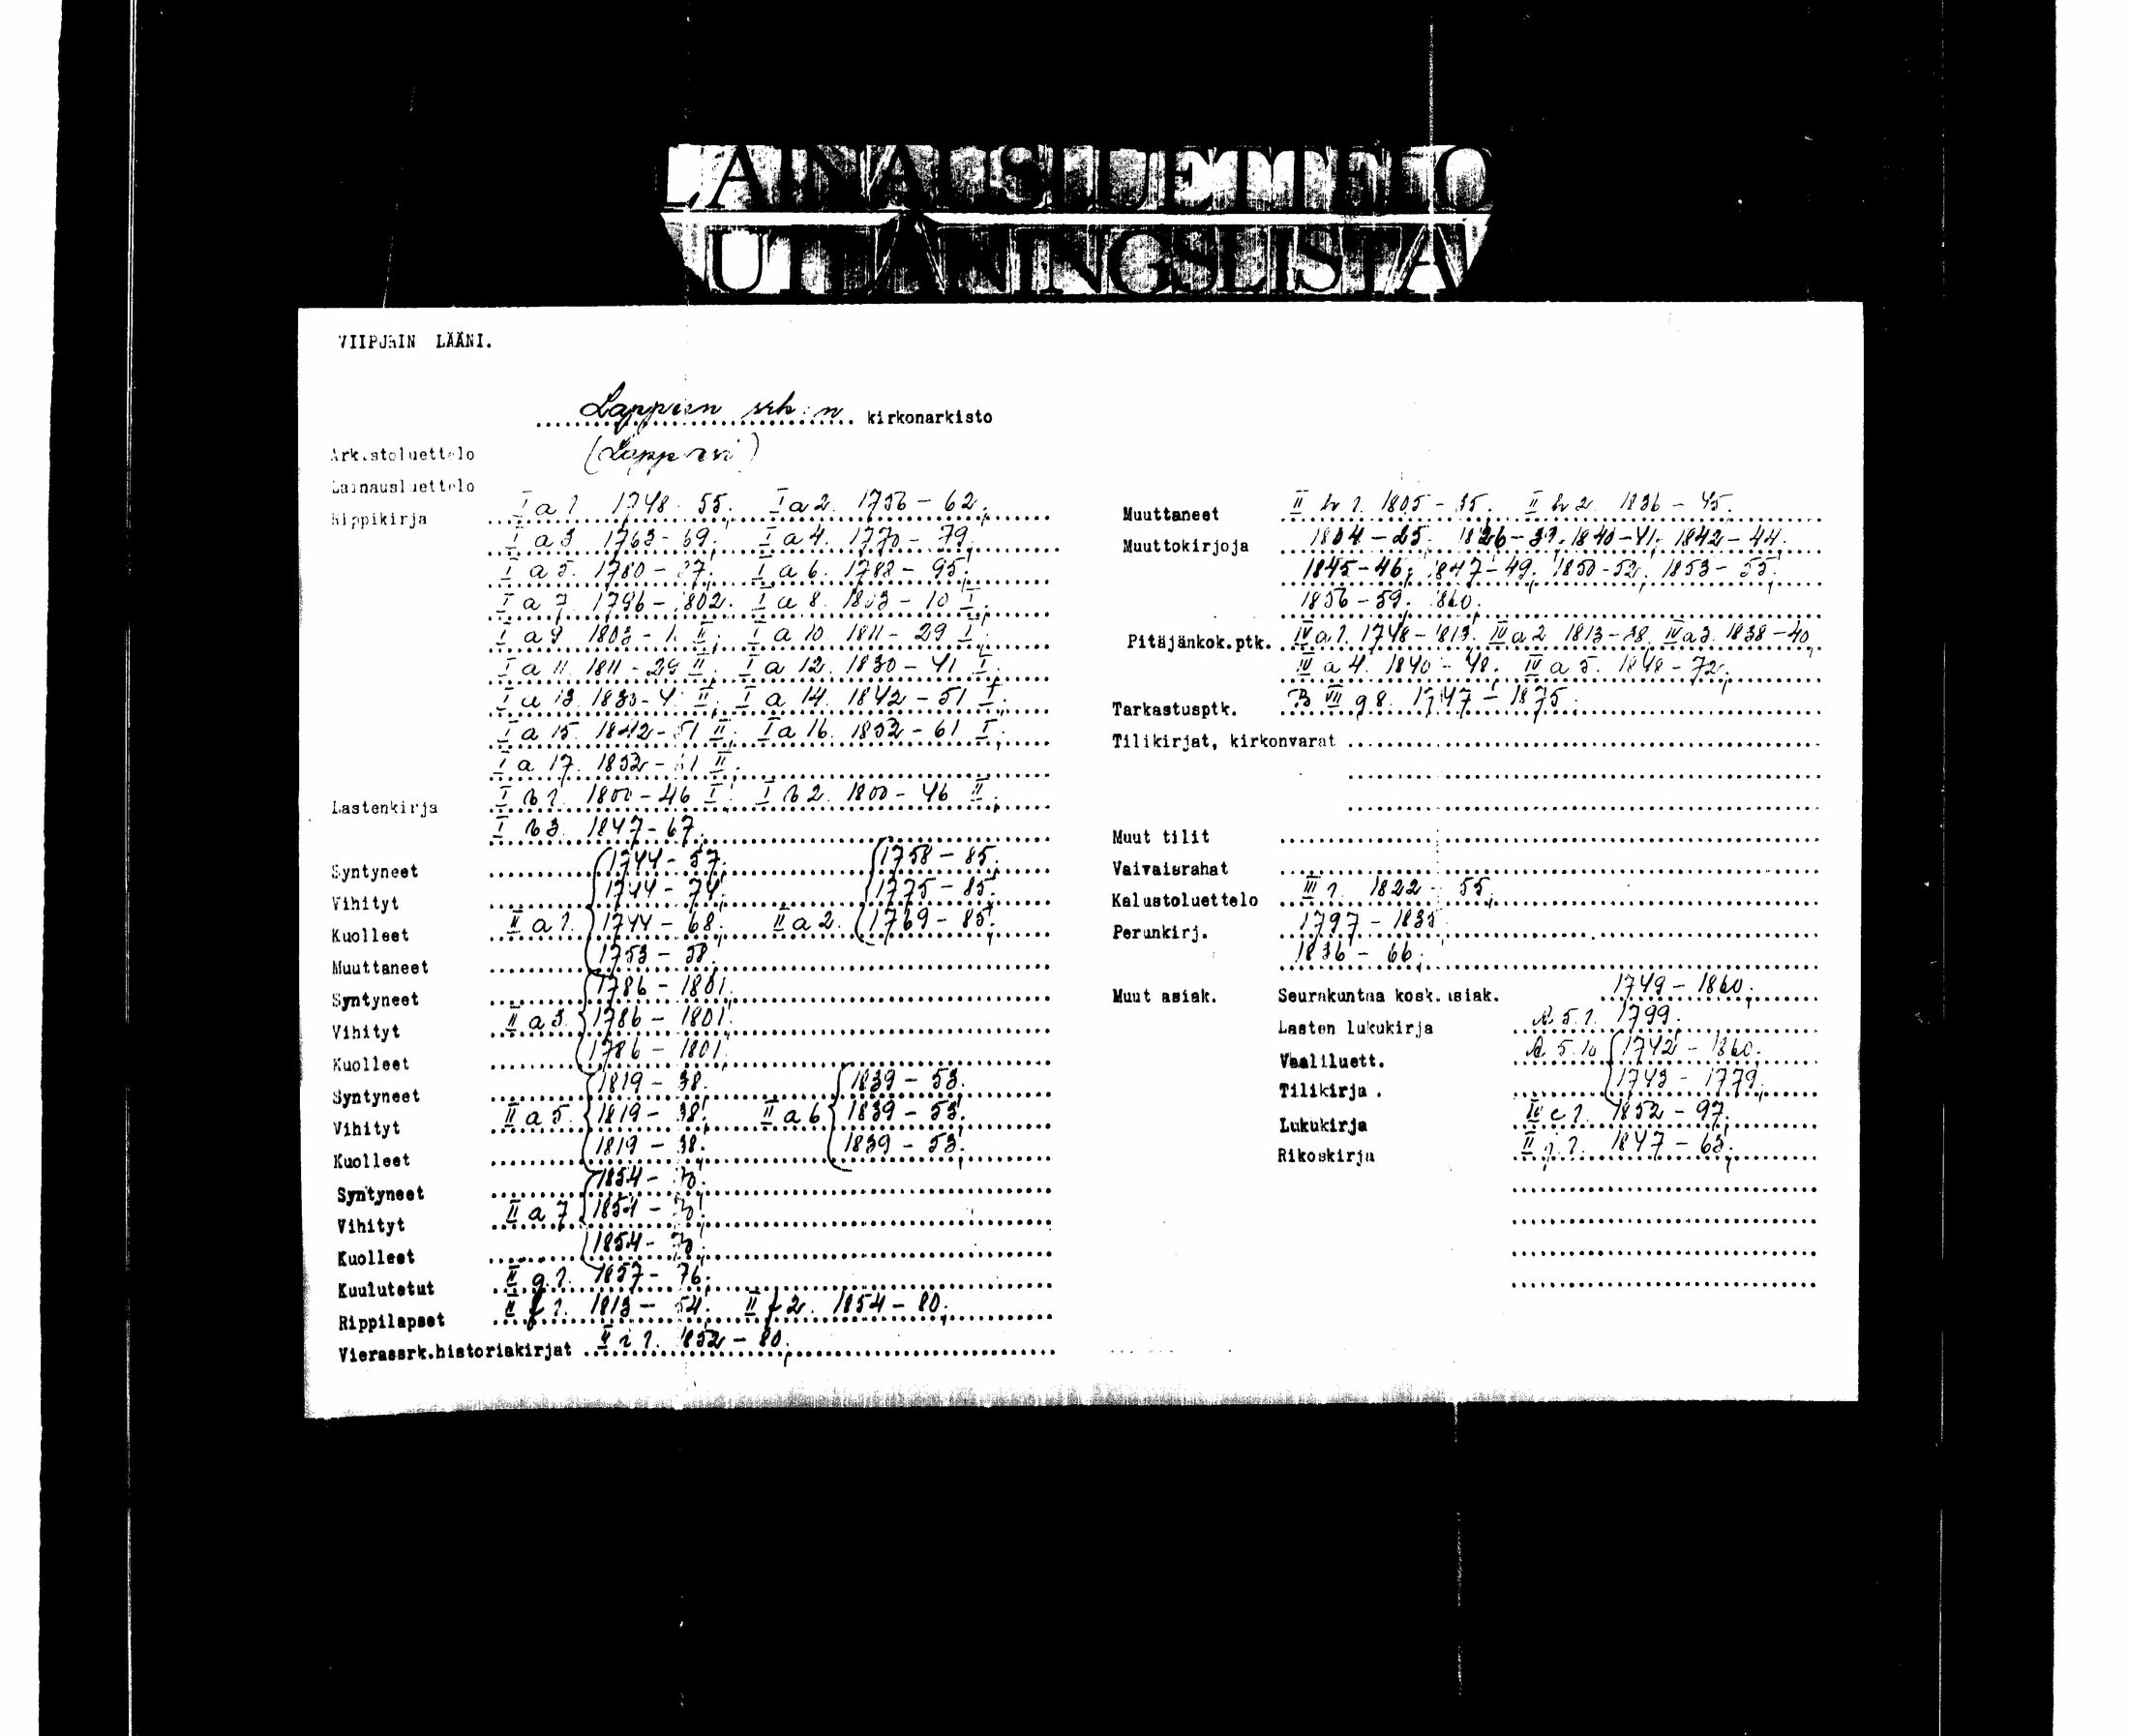 LAINAUSLUETTELO
UTLÅNINGSLISTA
VIIPURIN LÄÄNI.
Lappeen srk:n kirkonarkisto
Arkistoluettelo (Lappvesi)
Lainausluettelo
Rippikirja I a 1 1748-55. I a 2. 1756-62.
I a 3 1763-69. I a 4. 1770-79.
I a 5. 1780-87. I a 6. 1788-95.
I a 7. 1796-1802. I a 8. 1803-10 I.
I a 9 1803-1. II. I a 10. 1811-29 I.
I a 11. 1811-29 II. I a 12. 1830-41 I.
I a 13. 1830-4. II. I a 14. 1842-51 I.
I a 15. 1842-51 II. I a 16. 1852-61 I.
I a 17. 1852-61 II.
Lastenkirja I b 1. 1800-46 I. I b 2. 1800-46 II.
I b 3. 1847-67.
Syntyneet 1744-57. 1758-85.
Vihityt 1744-74. 1775-85.
Kuolleet II a 1. 1744-68. II a 2. 1769-85.
Muuttaneet 1753-58.
Syntyneet 1786-1801.
Vihityt II a 3. 1786-1801.
Kuolleet 1786-1801.
Syntyneet 1819-38. 1839-53.
Vihityt II a 5. 1819-38. II a 6 1839-53.
Kuolleet 1819-38. 1839-53.
Syntyneet 1854-70.
Vihityt II a 7 1854-70.
Kuolleet 1854-70.
Kuulutetut II g 1. 1857-76.
Rippilapset II f 1. 1813-54. II f 2. 1854-80.
Vierassrk.historiakirjat II i 1. 1852-80.
Muuttaneet II b 1. 1805-35. II b 2. 1836-45.
Muuttokirjoja 1804-25. 1826-39. 1840-41. 1842-44.
1845-46. 1847-49. 1850-52. 1853-55.
1856-59. 1860.
Pitäjänkok.ptk. IV a 1. 1748-1813. IV a 2 1813-38. IV a 3. 1838-40.
IV a 4. 1840-48. IV a 5. 1848-72.
Tarkastusptk. B VII g 8. 1747-1875.
Tilikirjat, kirkonvarat
Muut tilit
Vaivaisrahat
Kalustoluettelo III 1. 1822-55.
Perunkirj. 1797-1835
1836-66.
Muut asiak. Seurakuntaa kosk. asiak. 1749-1860.
Lasten lukukirja 5.1. 1799.
Vaaliluett. 5.10 1742-1860.
Tilikirja. 1743-1779.
Lukukirja IV c 1. 1852-97.
Rikoskirja II j 1. 1847-63.